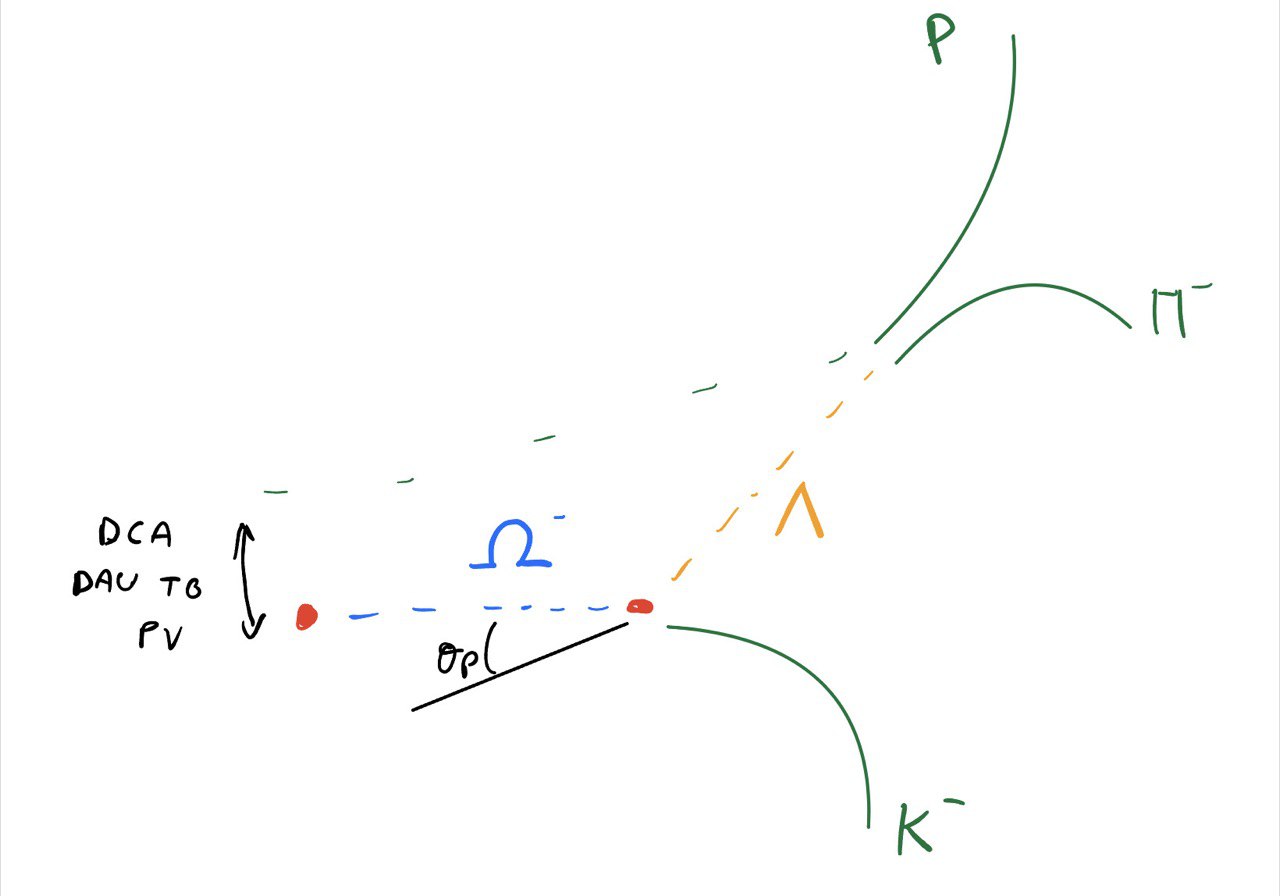 P
Π⁻
Ω⁻
Λ
DCA
DAU TO
PV
θp
K⁻